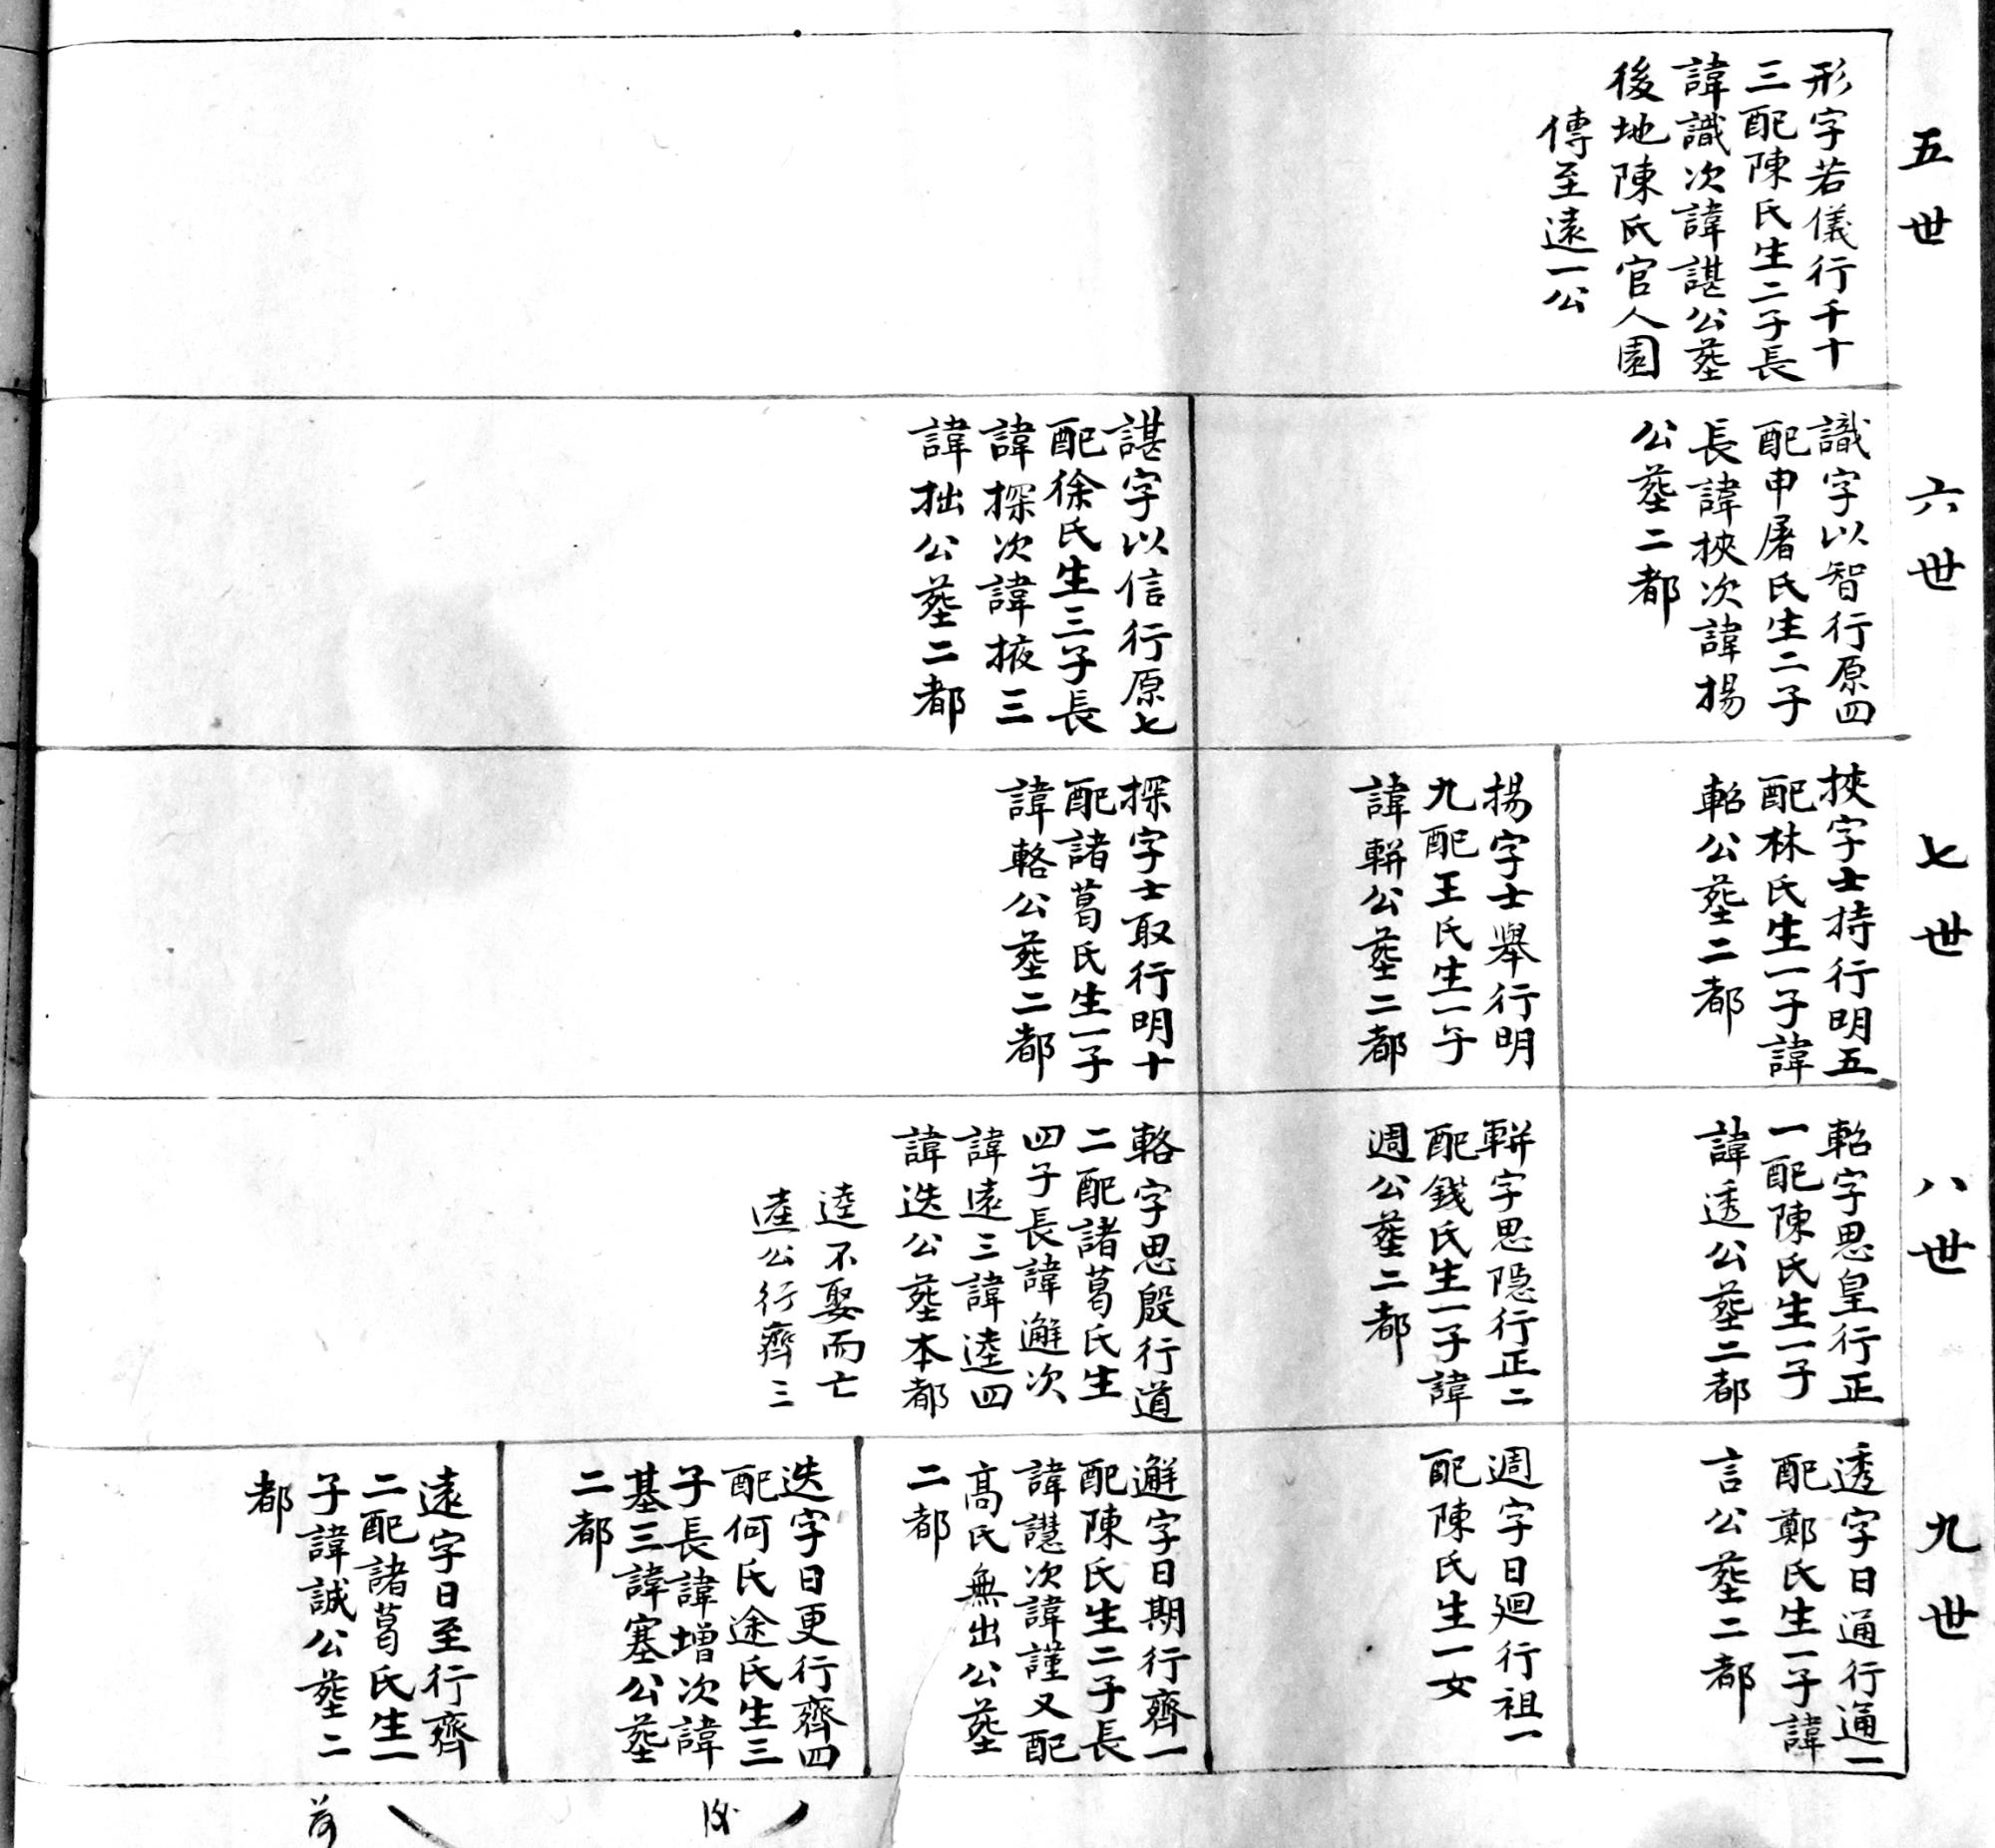 五世
形字若儀行千十
三配陳氏生二子長
諱識次諱諶公墓
後地陳氏官人園
傳至遠一公
六世
識字以智行原四
配申屠氏生二子
長諱挾次諱揚
公墓二都
諶字以信行原七
配徐氏生三子長
諱探次諱掖三
諱拙公墓二都
七世
挾字士持行明五
配林氏生一子諱
軺公墓二都
揚字士舉行明
九配王氏生一子
諱軿公墓二都
探字士取行明十
配諸葛氏生一子
諱輅公墓二都
八世
軺字思皇行正
一配陳氏生一子
諱透公墓二都
軿字思隱行正二
配錢氏生一子諱
週公墓二都
輅字思殷行道
二配諸葛氏生
四子長諱邂次
諱遠三諱逵四
諱迭公墓本都
逵不娶而亡
逵公行齊三
九世
透字日通行通一
配鄭氏生一子諱
言公墓二都
週字日廻行祖一
配陳氏生一女
邂字日期行齊一
配陳氏生二子長
諱譿次諱謹又配
高氏無出公墓
二都
迭字日更行齊四
配何氏途氏生三
子長諱增次諱
基三諱塞公墓
二都
遠字日至行齊
二配諸葛氏生一
子諱誠公墓二
都